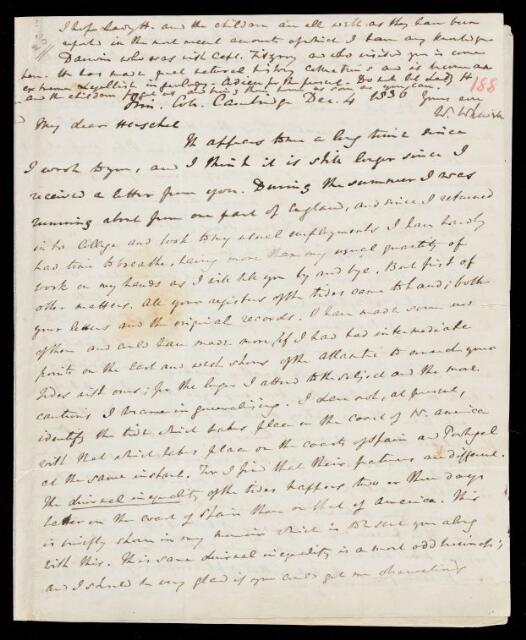 I hope Lady H. and the children are all well as they have been
in the most recent accounts of which I have any knowledge
Darwin who was with Capt. Fitzroy and who visited you is come
home. He has made great natural history collections and is become an
extreme Lyellist in geology.
and the children
188
Trin. Coll. Cambridge Dec. 4 1836 Yours ever
W. Whewell
My dear Herschel
It appears to me a long time since
I wrote to you, and I think it is still longer since I
received a letter from you. During the summer I was
running about from one part of England, and since I returned
into College and took to my usual employments I have hardly
had time to breathe, having more than my usual quantity of
work on my hands as I will tell you by and bye. But first of
other matters. All your registers of the tides came to hand; both
your letters and the original records. I have made some use
of them and could have made more, if I had had intermediate
points on the east and west shores of the Atlantic to connect your
tides with ours; for the longer I attend to the subject and the more
cautious I become in generalizing. I dare not, at present,
identify the tide which takes place on the coast of N. America
with that which takes place on the coasts of Spain and Portugal
at the same instant. For I find that their features are different.
The diurnal inequality of the tides happens two or three days
later on the coast of Spain than on that of America. This
is briefly shewn in my memoir which is to be sent you along
with this. This same diurnal inequality is a most odd business;
and I should be very glad if you could get me observations